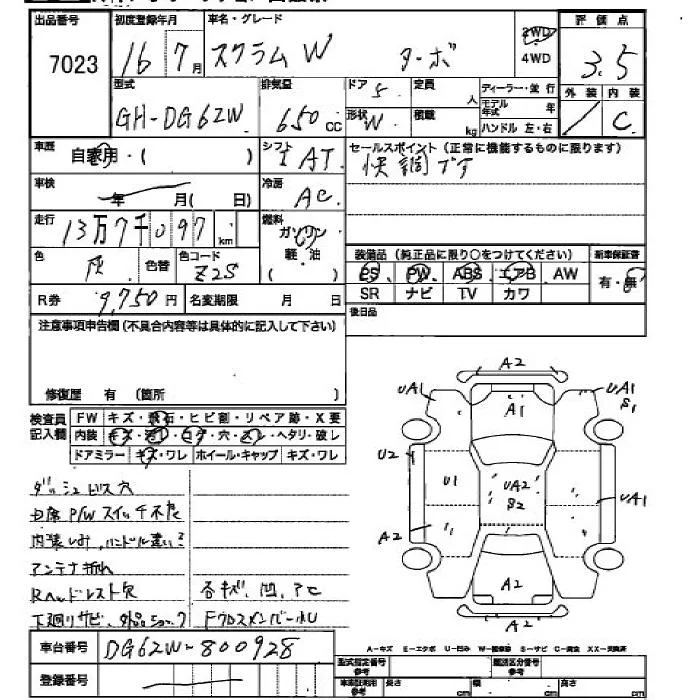 出品番号 初度登録年月 車名・グレード 2WD 評価点
7023 16 7月 スクラムW ターボ 4WD 3.5
型式 排気量 ドア 5 定員 人 ディーラー・並行 外装 内装
GH-DG62W 650cc 形状 W 積載 kg モデル年式 年 / C
ハンドル 左・右
車歴 自家用・( ) シフト IAT セールスポイント(正常に機能するものに限ります)
快調デス
車検 年 月( 日) 冷房 AC
走行 13万7千097km 燃料 ガソリン
軽・油
( )
色 灰 色替 色コード Z2S 装備品(純正品に限り○をつけてください) 新車保証書
PS PW ABS エアB AW 有・無
R券 9,750円 名変期限 月 日 SR ナビ TV カワ
注意事項申告欄(不具合内容等は具体的に記入して下さい) 後日品
修復歴 有 (箇所 )
検査員記入欄 FW キズ・飛石・ヒビ割・リペア跡・X要
内装 キズ・汚レ・コゲ・穴・スレ・ヘタリ・破レ
ドアミラー キズ・ワレ ホイール・キャップ キズ・ワレ
A2
UA1 A1 UA1
S1
U2 U1 UA2 UA1
S2
A2
A2
A2
ダッシュビス穴
P/Wスイッチ不良
アンテナ折れ
Rヘッドレスト欠 各キズ、凹、アセ
下廻りサビ、 FクロスメンバールU
A-キズ E-エクボ U-凹み W-補修跡 S-サビ C-腐食 XX-交換済
車台番号 DG62W-800928
型式指定番号 参考 類別区分番号 参考
登録番号 車車証記用 参考 長さ cm 幅 cm 高さ cm